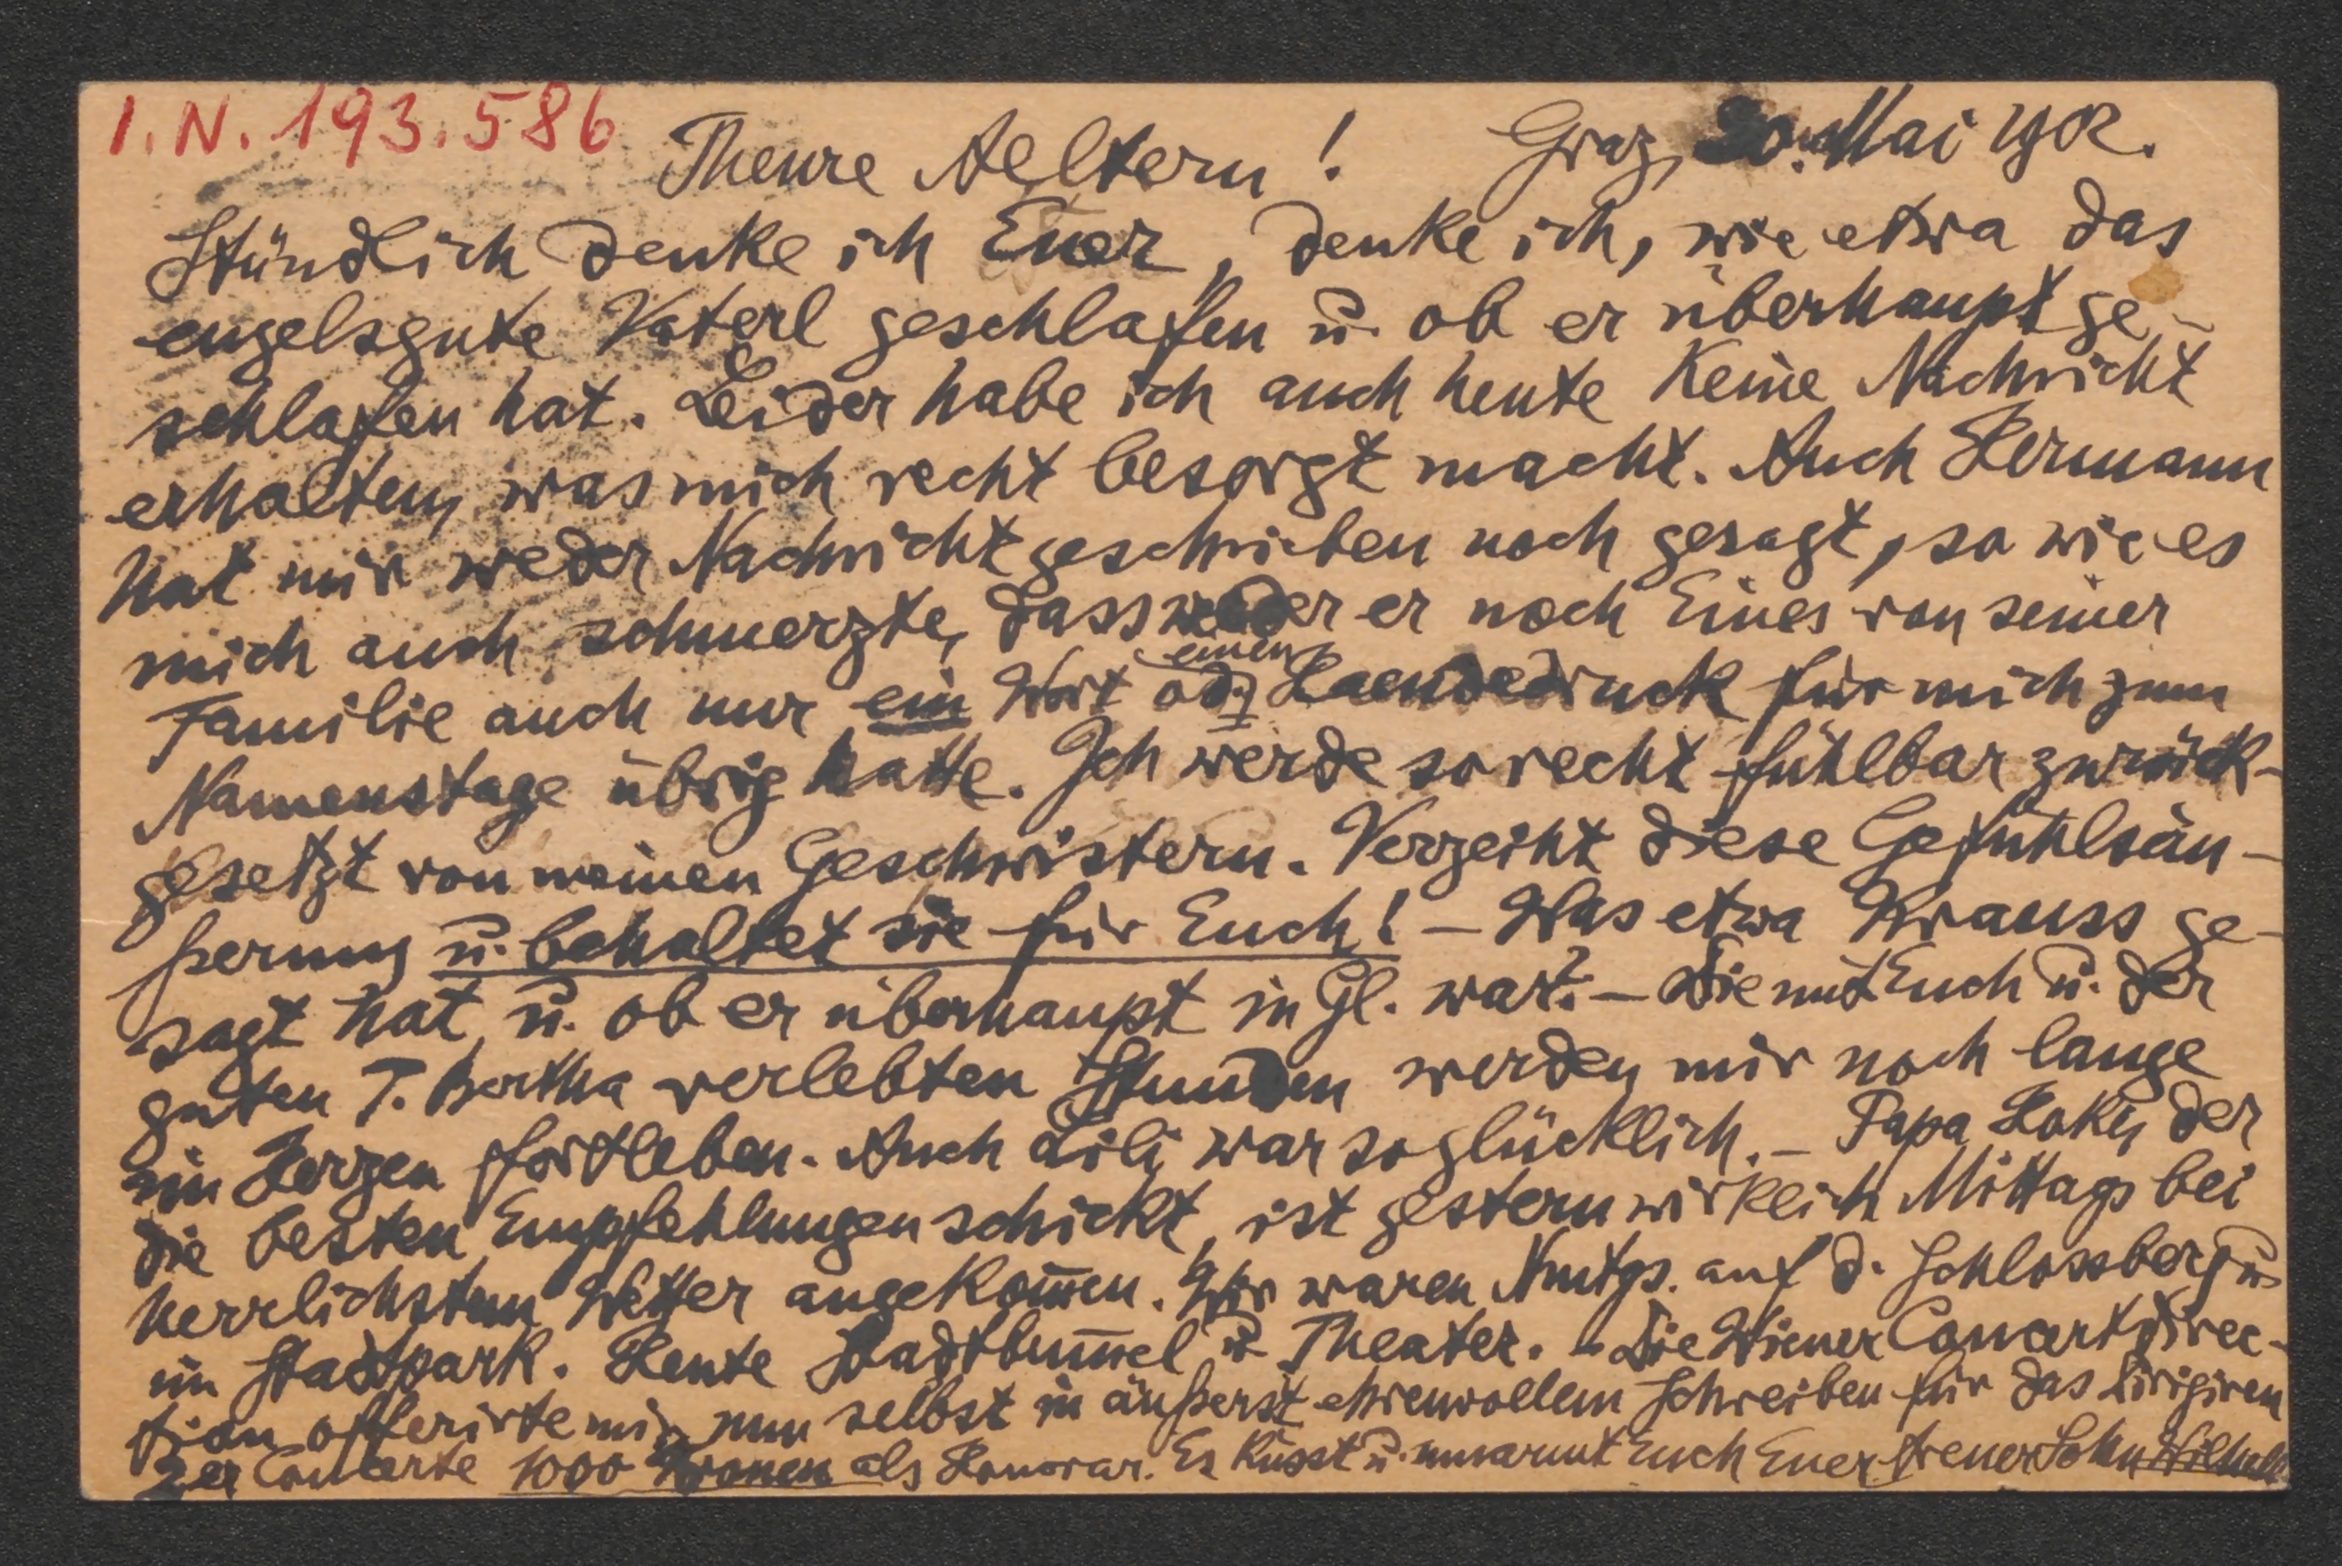 I. N. 193.586
Theure Aeltern! Graz, 30. Mai 1902.
Stündlich denke ich Euer, denke ich, wie etwa das
engelsgute Vaterl geschlafen u. ob er überhaupt ge-
schlafen hat. Leider habe ich auch heute keine Nachricht
erhalten, was mich recht besorgt macht. Auch Hermann
hat mir weder Nachricht geschrieben noch gesagt, so wie es
mich auch schmerzte, dass weder er noch Eines von seiner
Familie auch nur ein Wort od. einen Haendedruck für mich zum
Namenstage übrig hatte. Ich werde so recht fühlbar zurück-
gesetzt von meinen Geschwistern. Verzeiht diese Gefühlsäu-
ßerung u. behaltet sie für Euch! – Was etwa Krauss ge-
sagt hat u. ob er überhaupt in Gl. war? – Die mit Euch u. der
guten T. Bertha verlebten Stunden werden mir noch lange
im Herzen fortleben. Auch Lili war so glücklich. – Papa Hoke, der
die besten Empfehlungen schickt, ist gestern wirklich Mittags bei
herrlichstem Wetter angekom̄en. Wir waren Nmtgs. auf d. Schlossberg u.
im Stadtpark. Heute Stadtbum̄el u. Theater. – Die Wiener Concertdirec-
tion offerirte mir nun selbst in äußerst ehrenvollem Schreiben für das Dirigiren
2er Concerte 1000 Kronen als Honorar. Es küsst u. umarmt Euch Euer treuer Sohn Wilhelm